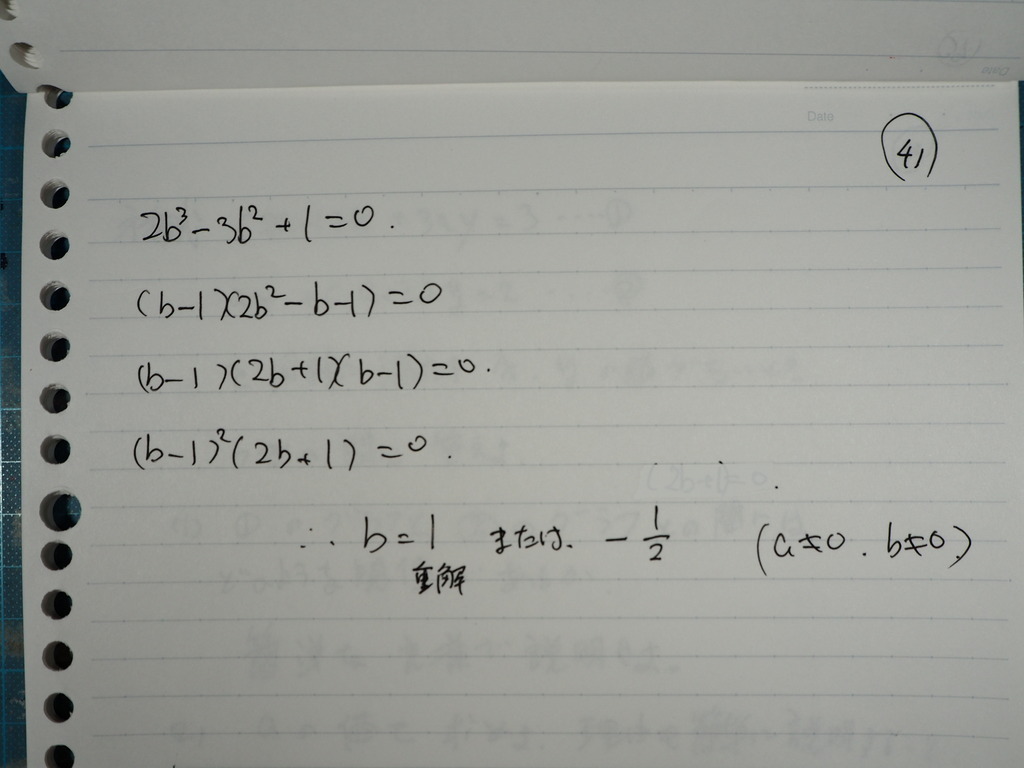 Data
41
2b³ - 3b² + 1 = 0.
(b-1)(2b² - b - 1) = 0
(b-1)(2b+1)(b-1) = 0.
(b-1)²(2b+1) = 0.
∴ b = 1 または、 - 1/2 (a≠0. b≠0)
重解